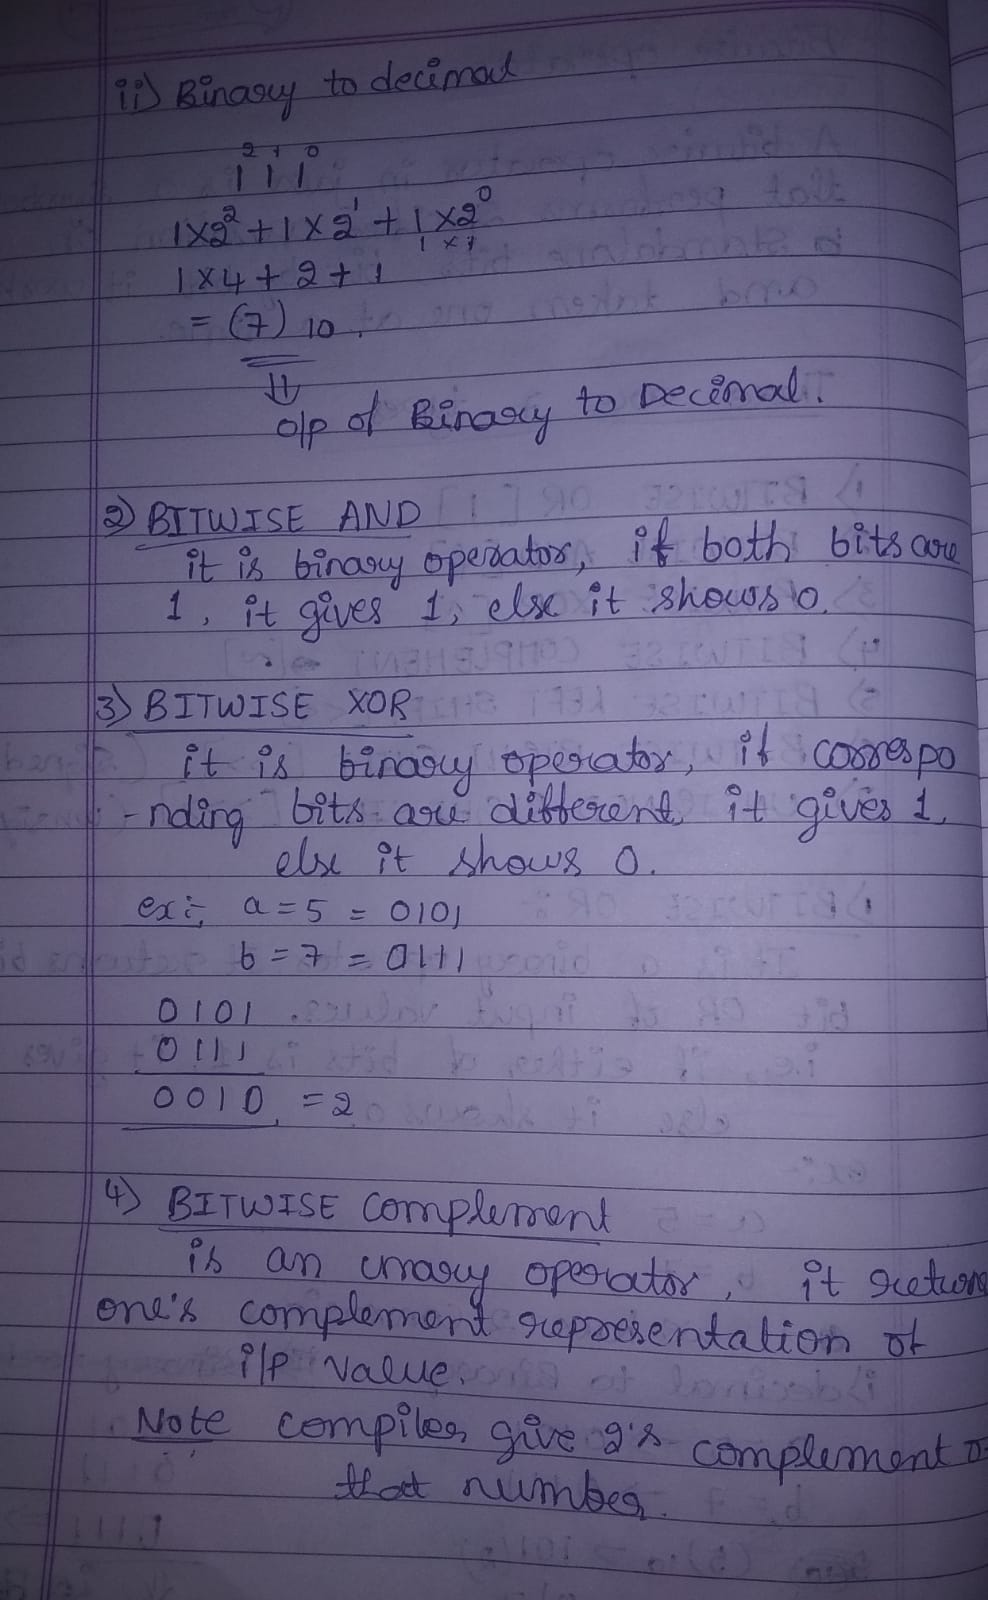 ii) Binary to decimal
2 1 0
1 1 1
1×2² + 1×2¹ + 1×2⁰
1×1
1×4 + 2 + 1
= (7) 10.
⇓
o/p of Binary to Decimal.
2) BITWISE AND
it is binary operator, if both bits are
1, it gives 1, else it shows 0.
3) BITWISE XOR
it is binary operator, if correspo
-nding bits are different, it gives 1,
else it shows 0.
ex:- a = 5 = 0101
b = 7 = 0111
0101
0111
0010 = 2
4) BITWISE complement
is an unary operator, it return
one's complement representation of
i/p value.
Note compiler give 2's complement
that number.